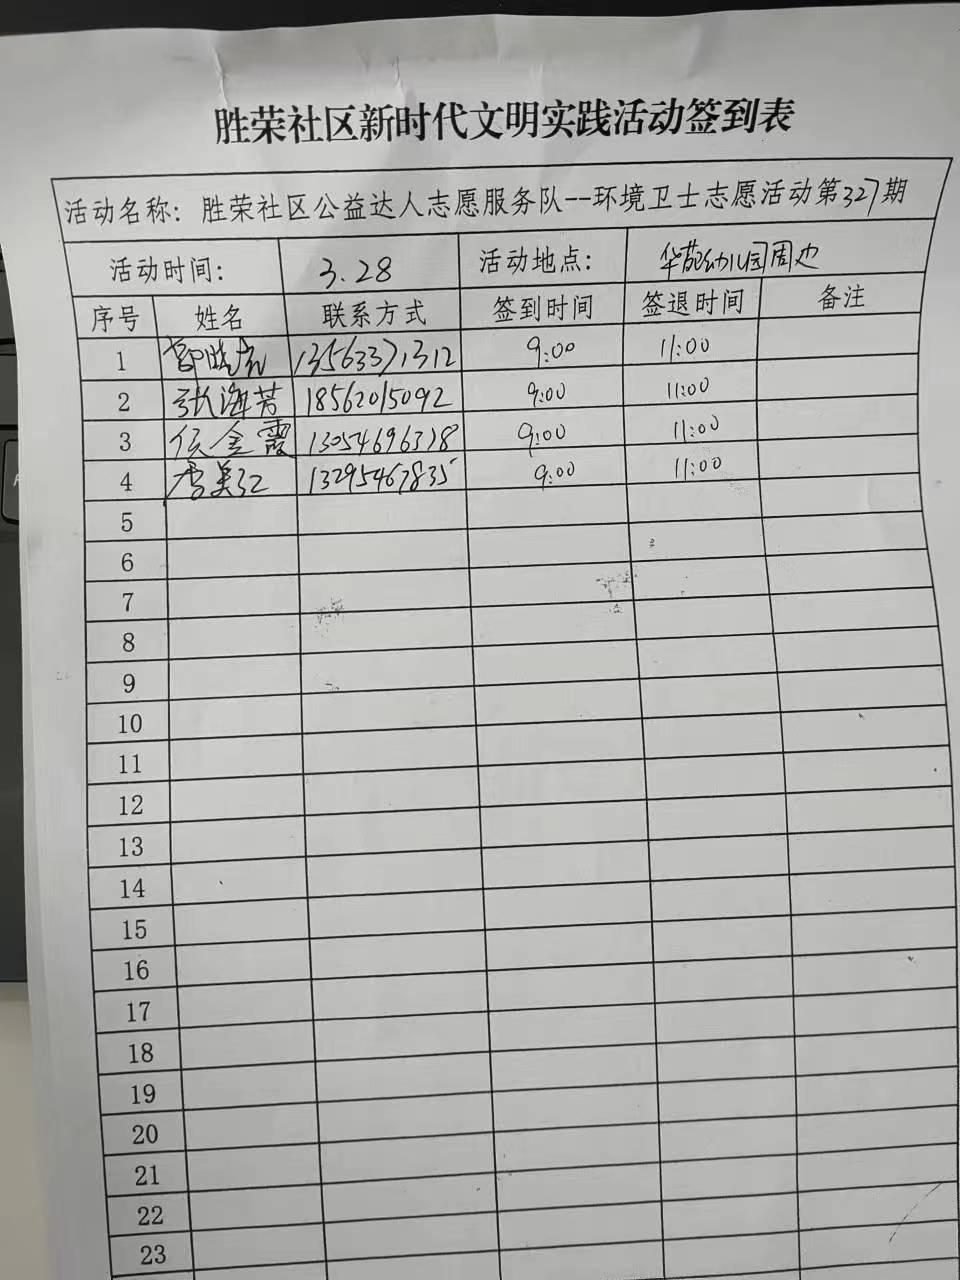 胜荣社区新时代文明实践活动签到表
活动名称：胜荣社区公益达人志愿服务队--环境卫士志愿活动第327期
活动时间： 3.28 活动地点： 华苑幼儿园周边
序号 姓名 联系方式 签到时间 签退时间 备注
1 13563371312 9:00 11:00
2 张海芳 18562015092 9:00 11:00
3 侯金霞 13054696318 9:00 11:00
4 李美江 13295467835 9:00 11:00
5
6
7
8
9
10
11
12
13
14
15
16
17
18
19
20
21
22
23